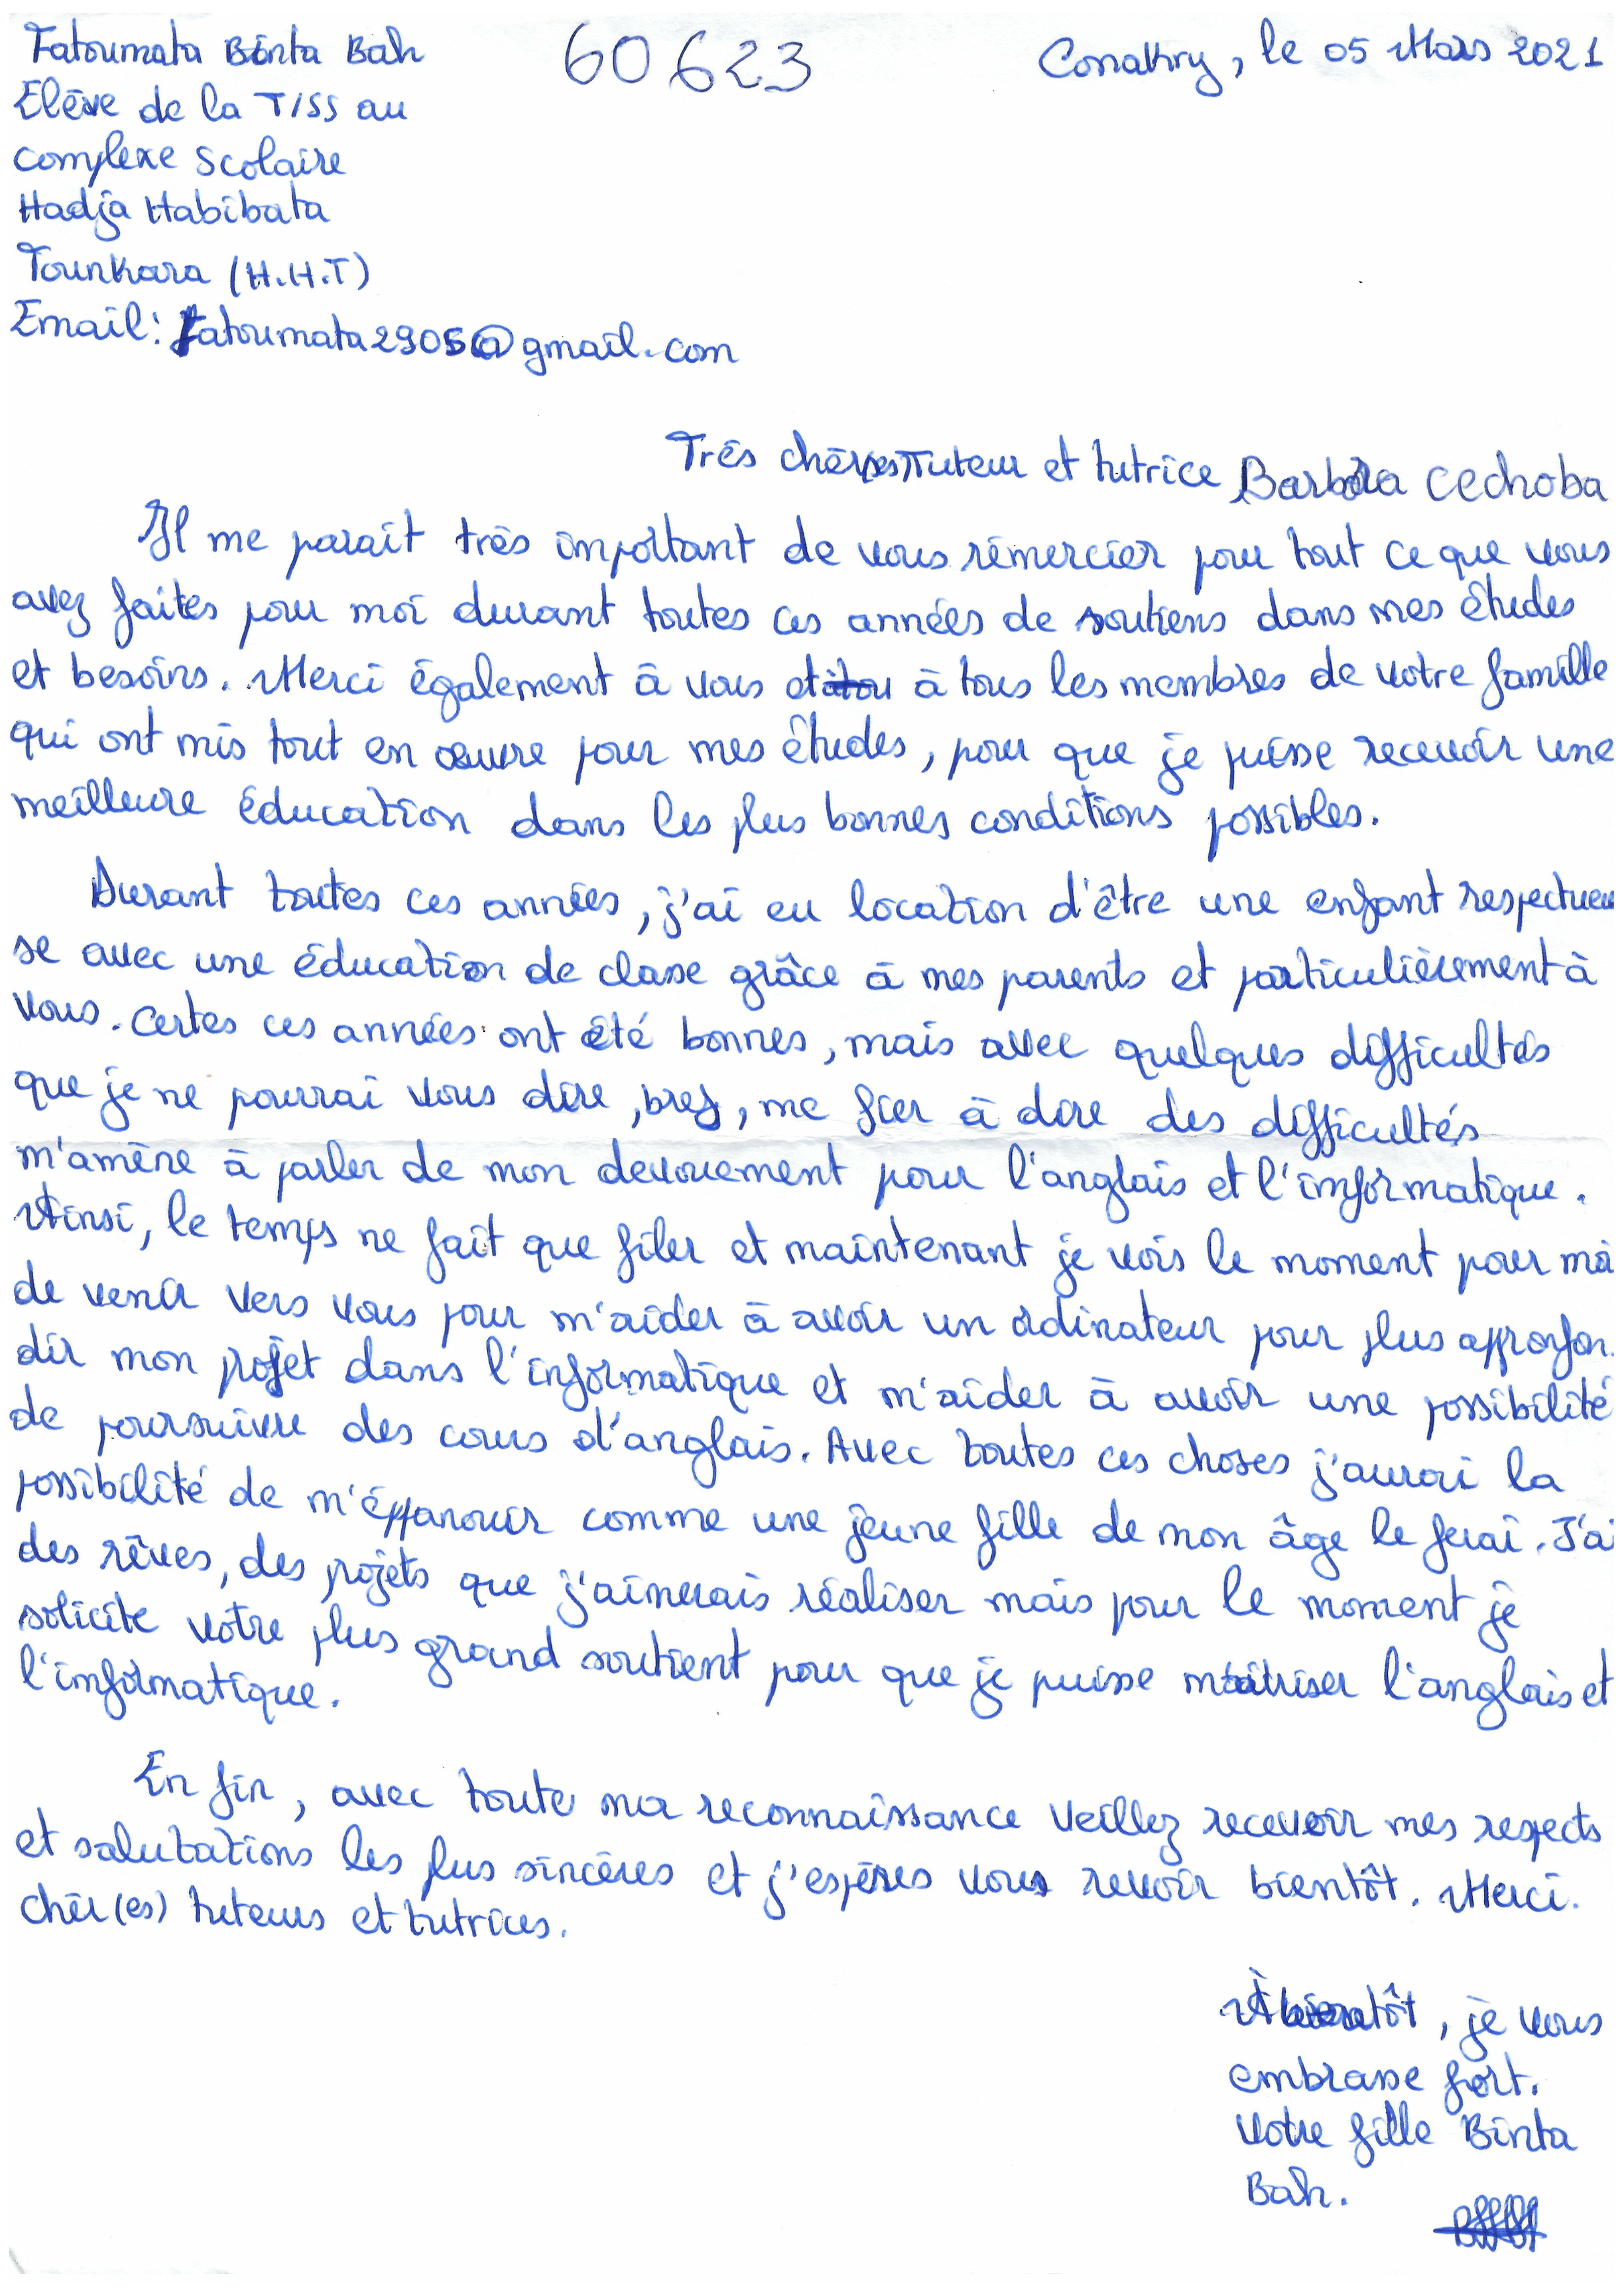 Fatoumata Binta Bah
60623
Conakry, le 05 Mars 2021
Elève de la TISS au
complexe Scolaire
Hadja Habibata
Tounkara (H.H.T)
Email: fatoumata2905@gmail.com
Très chèr(es) Tuteur et tutrice Barbora Cechoba
Il me parait très important de vous rémercier pour tout ce que vous
avez faites pour moi durant toutes ces années de soutiens dans mes études
et besoins. Merci également à vous et à tous les membres de votre famille
qui ont mis tout en œuvre pour mes études, pour que je puisse recevoir une
meilleure éducation dans les plus bonnes conditions possibles.
Durant toutes ces années, j'ai eu location d'être une enfant respectueu
se avec une éducation de classe grâce à mes parents et particulièrement à
vous. Certes ces années ont été bonnes, mais avec quelques difficultés
que je ne pourrai vous dire, bref, me fier à dire des difficultés
m'amène à parler de mon devouement pour l'anglais et l'informatique.
Ainsi, le temps ne fait que filer et maintenant je vois le moment pour moi
de venir vers vous pour m'aider à avoir un ordinateur pour plus approfon
dir mon projet dans l'informatique et m'aider à avoir une possibilité
de poursuivre des cours d'anglais. Avec toutes ces choses j'aurai la
possibilité de m'éppanouir comme une jeune fille de mon âge le ferai. J'ai
des rêves, des projets que j'aimerais réaliser mais pour le moment je
solicite votre plus grand soutient pour que je puisse maîtriser l'anglais et
l'informatique.
En fin, avec toute ma reconnaissance veillez recevoir mes respects
et salutations les plus sincères et j'espères vous revoir bientôt. Merci.
chèr(es) tuteurs et tutrices.
À bientôt, je vous
embrasse fort.
Votre fille Binta
Bah.